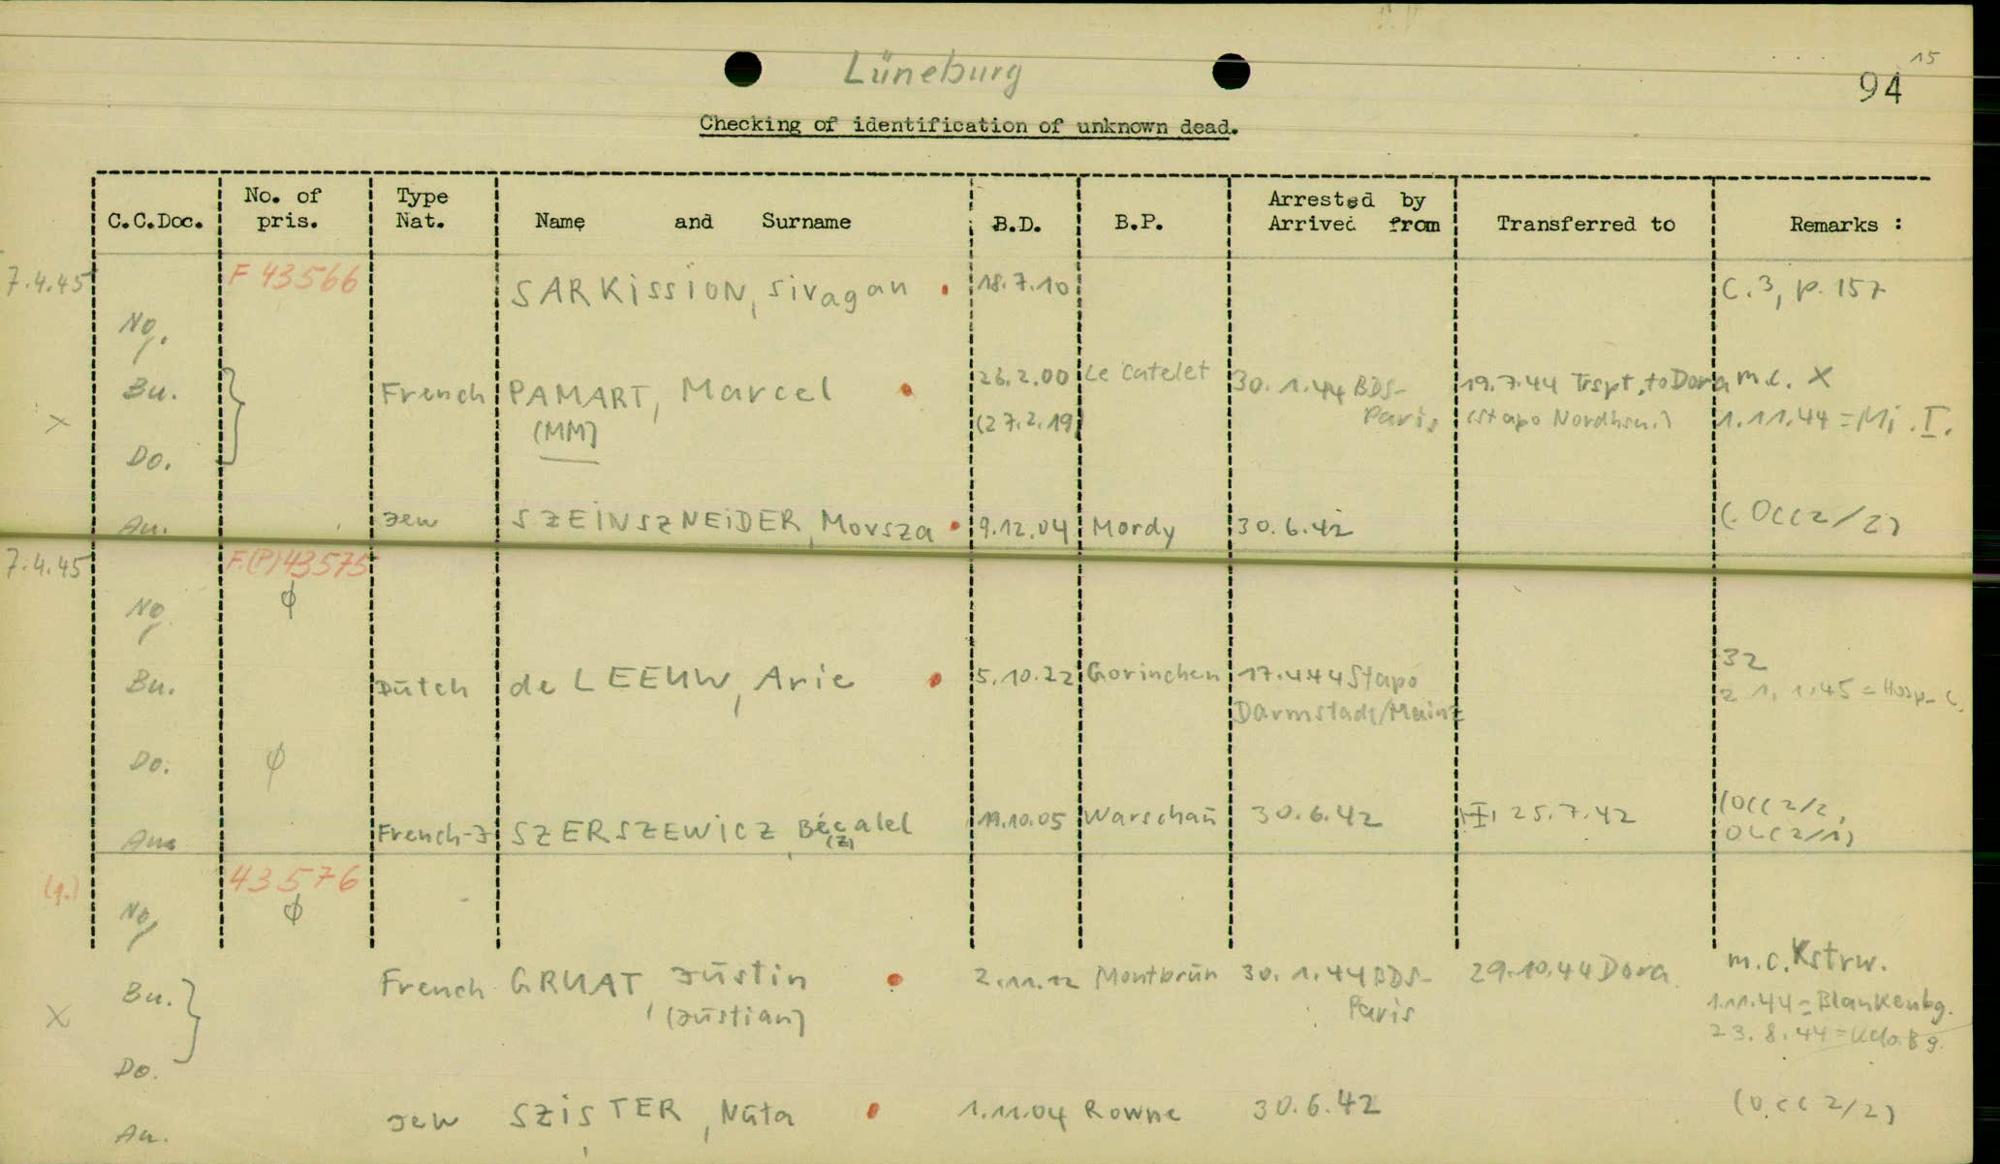 Lüneburg
15
94
Checking of identification of unknown dead.
C.C.Doc. No. of pris. Type Nat. Name and Surname B.D. B.P. Arrested by Arrived from Transferred to Remarks :
7.4.45 F 43566 SARKiSSiON, Sivagan 18.7.10 C.3, p. 157
No.
Bu. French PAMART, Marcel 26.2.00 Le Catelet 30.1.44 BDS- 19.7.44 Trspt. to Dora m.c. X
X (MM) (27.2.19) Paris (Stapo Nordhsn.) 1.11.44 = Mi. I.
Do.
Au. Jew SZEiNSZNEiDER, Movsza 9.12.04 Mordy 30.6.42 (OCC2/2)
7.4.45 F.(P)43575
No. ϕ
Bu. Dutch de LEEUW, Arie 5.10.22 Gorinchen 17.4.44 Stapo 32
Darmstadt/Mainz 21.1.45 = Hosp.
Do. ϕ
Au. French-J SZERSZEWiCZ, Béçalel (z) 11.10.05 Warschau 30.6.42 I, 25.7.42 (OCC 2/2,
OCC 2/1)
(g.) 43576
No. ϕ
Bu. French GRUAT, Justin 2.11.12 Montbrun 30.1.44 BDS- 29.10.44 Dora m.c. Kstrw.
X (Justian) Paris 1.11.44 = Blankenbg.
23.8.44 =
Do.
Au. Jew SZiSTER, Nuta 1.11.04 Rowne 30.6.42 (OCC 2/2)